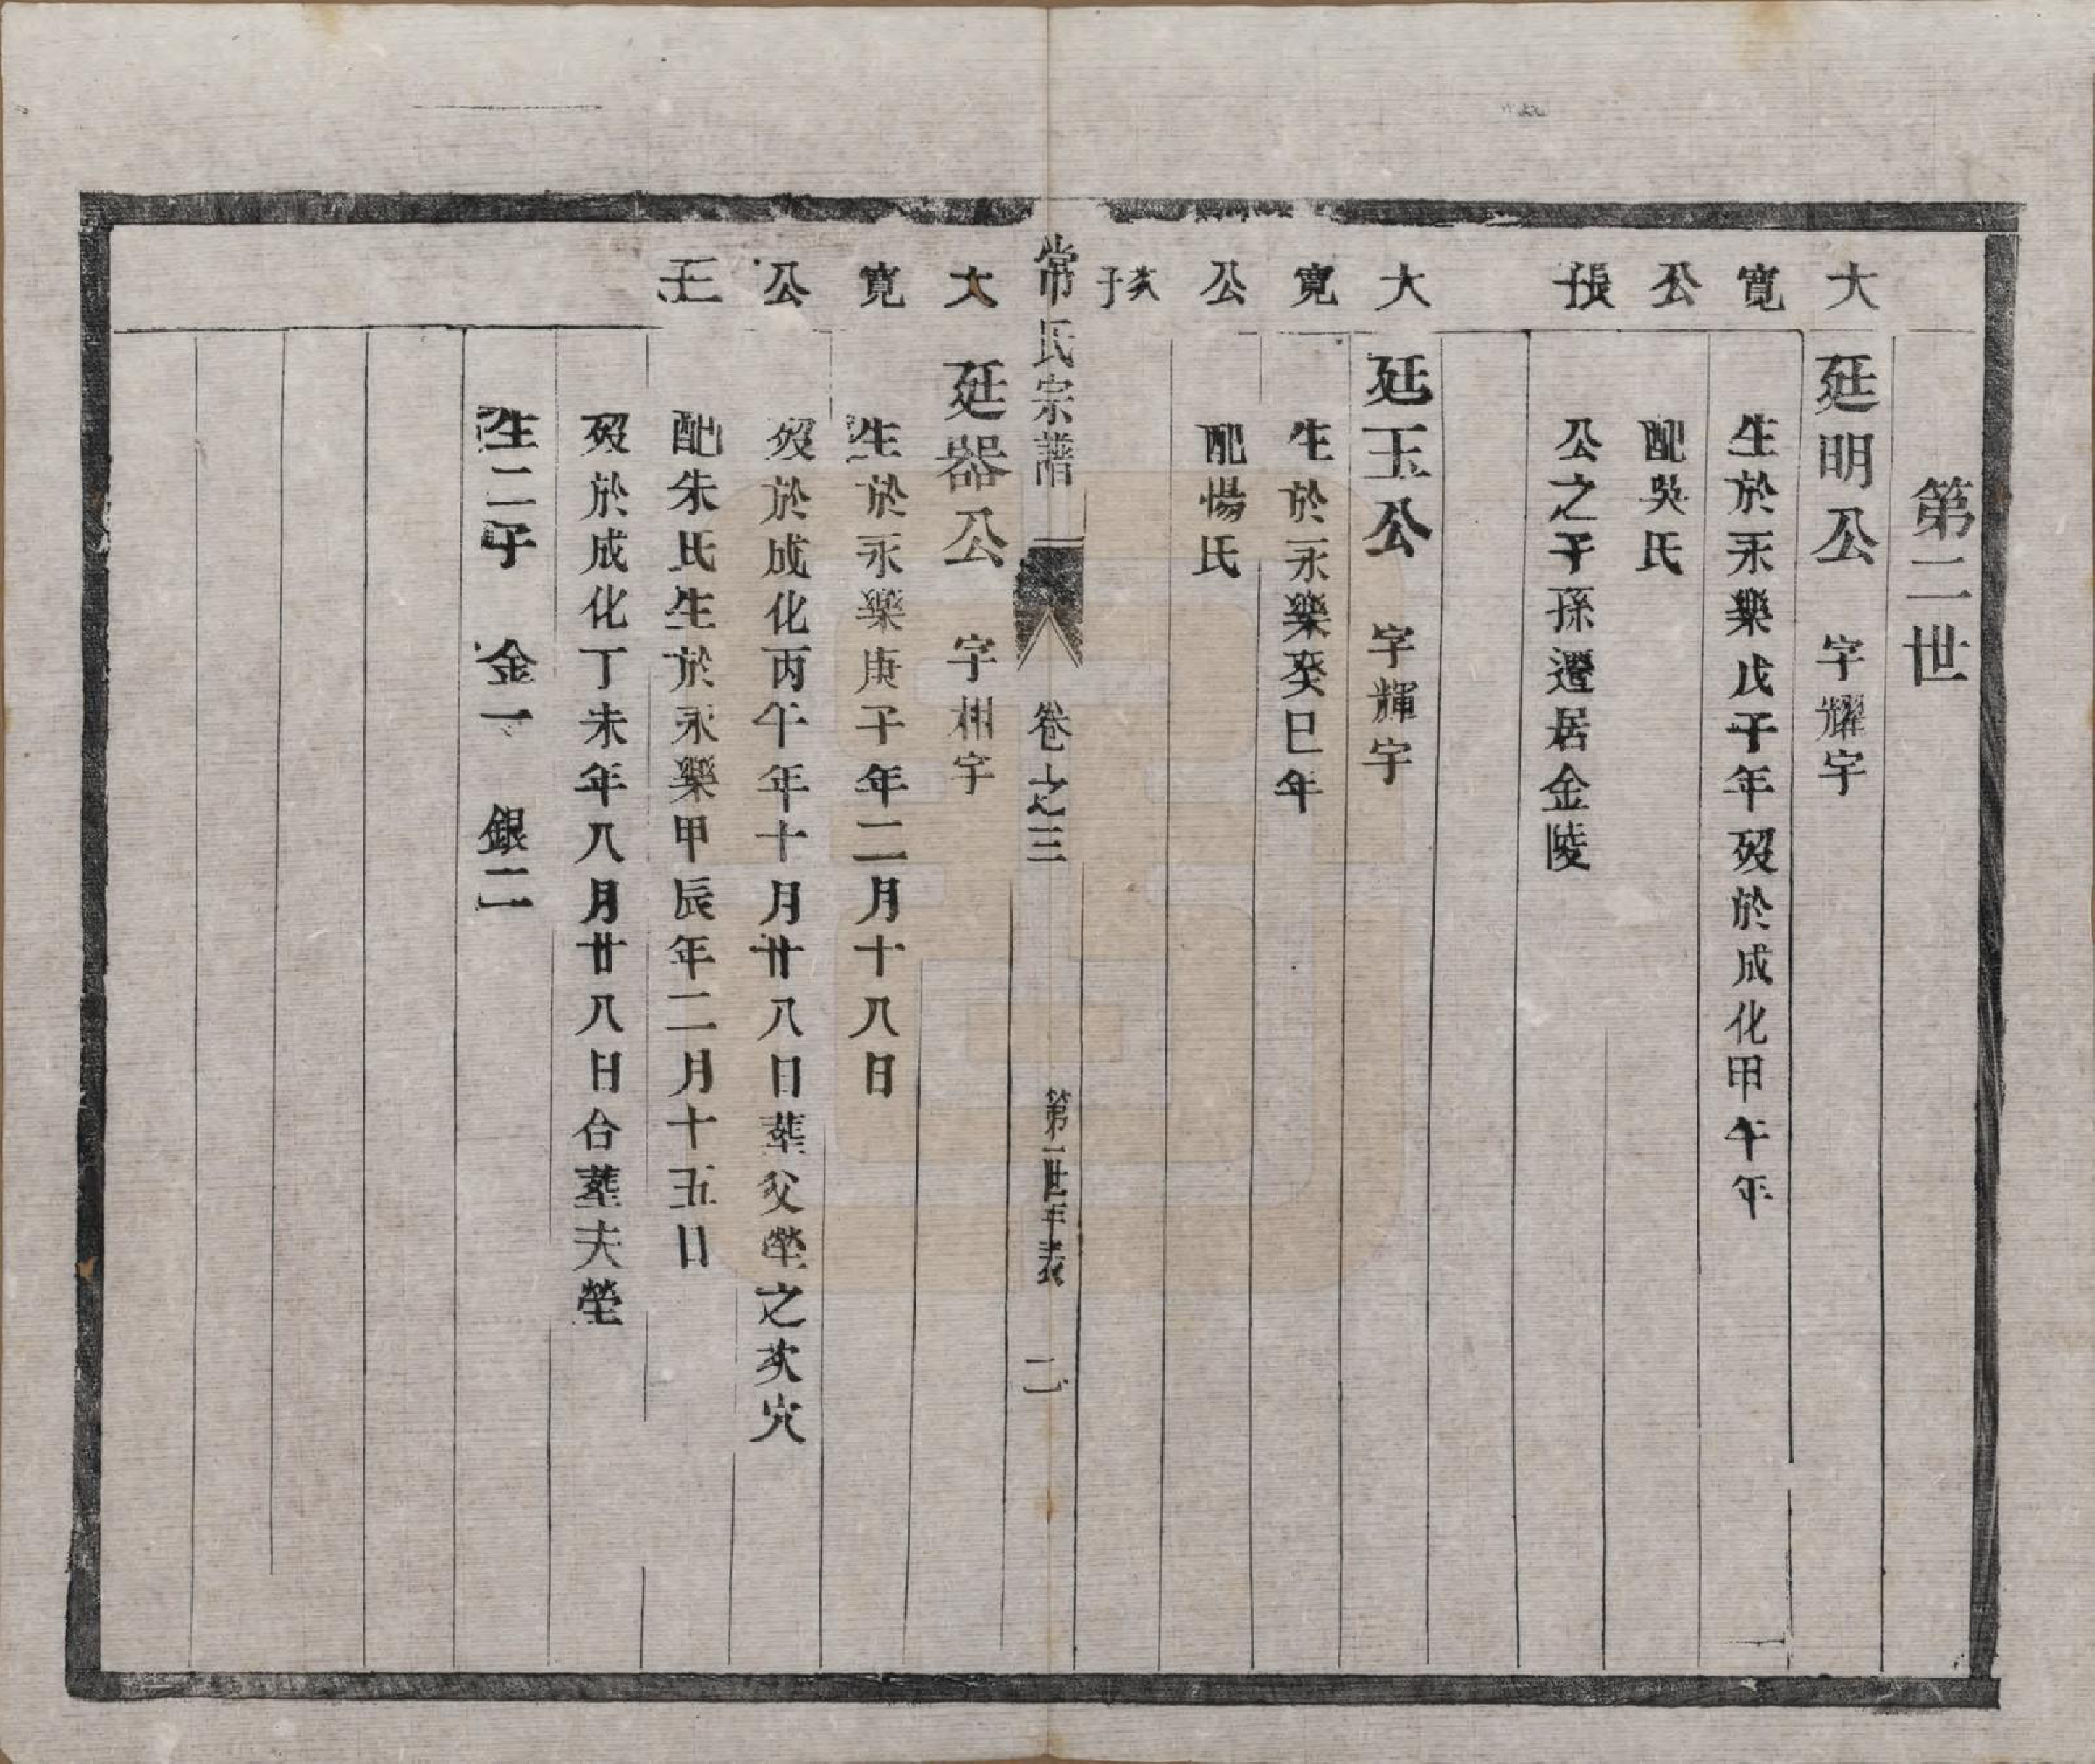 第二世
大寬公長子
廷明公　字耀宇
生於永樂戊子年歿於成化甲午年
配吳氏
公之子孫遷居金陵
大寬公次子
廷玉公　字輝宇
生於永樂癸巳年
配楊氏
常氏宗譜　卷之三　第二世年表　二
大寬公三子
廷器公　字相宇
生於永樂庚子年二月十八日
歿於成化丙午年十月廿八日葬父塋之亥穴
配朱氏生於永樂甲辰年二月十五日
歿於成化丁未年八月廿八日合葬夫塋
生二子　金一　銀二